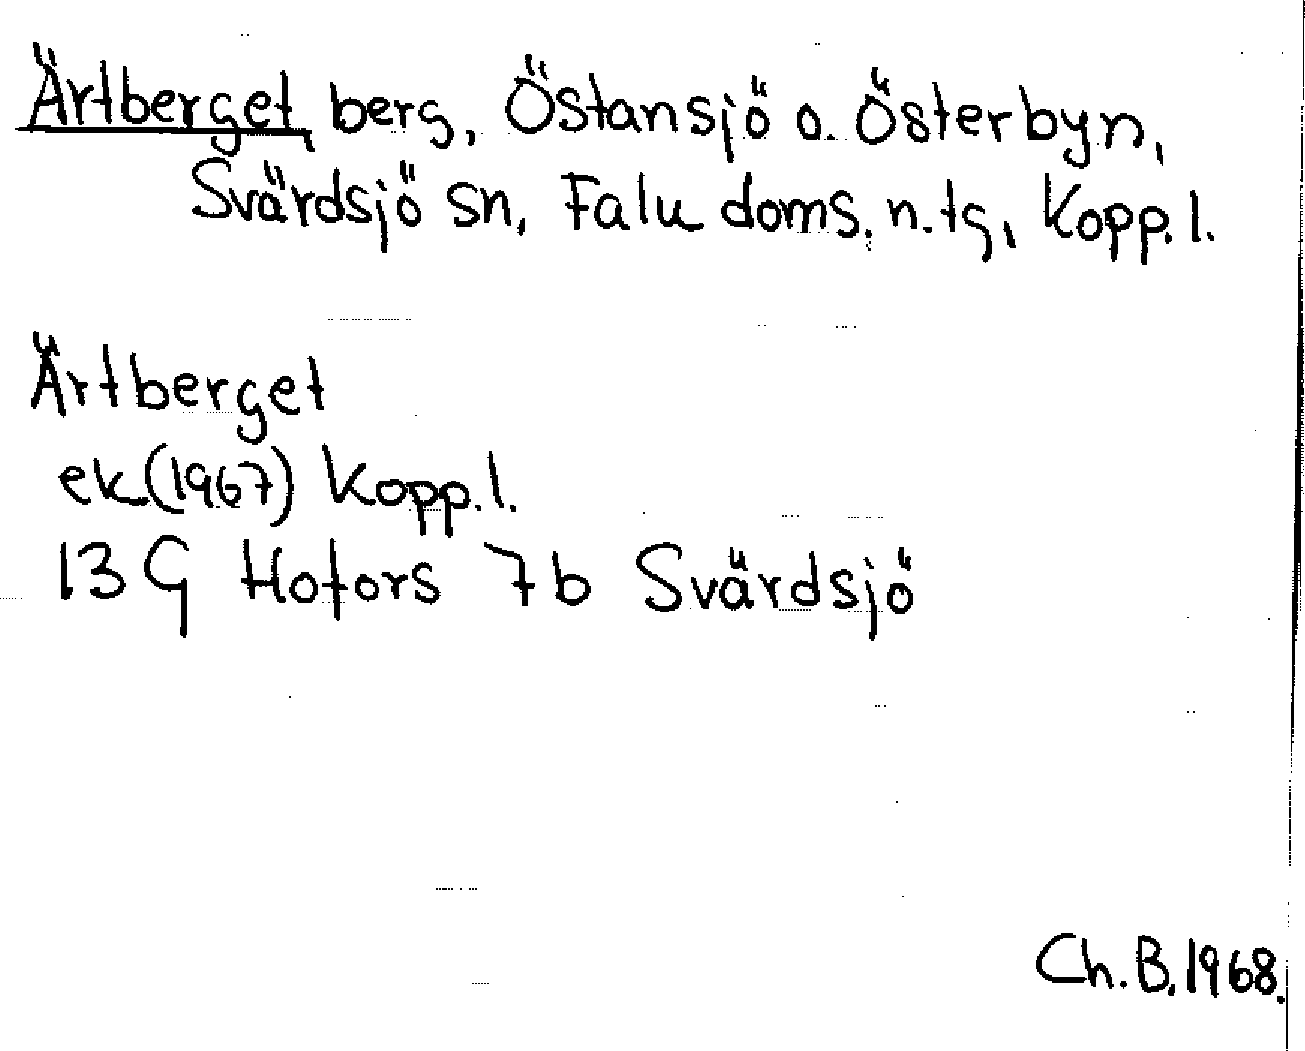 Ärtberget berg, Östansjö o. Österbyn,
Svärdsjö sn, Falu doms. n. tg, Kopp. l.
Ärtberget
ek (1967) Kopp. l.
13 G Hofors 7b Svärdsjö
Ch. B. 1968.